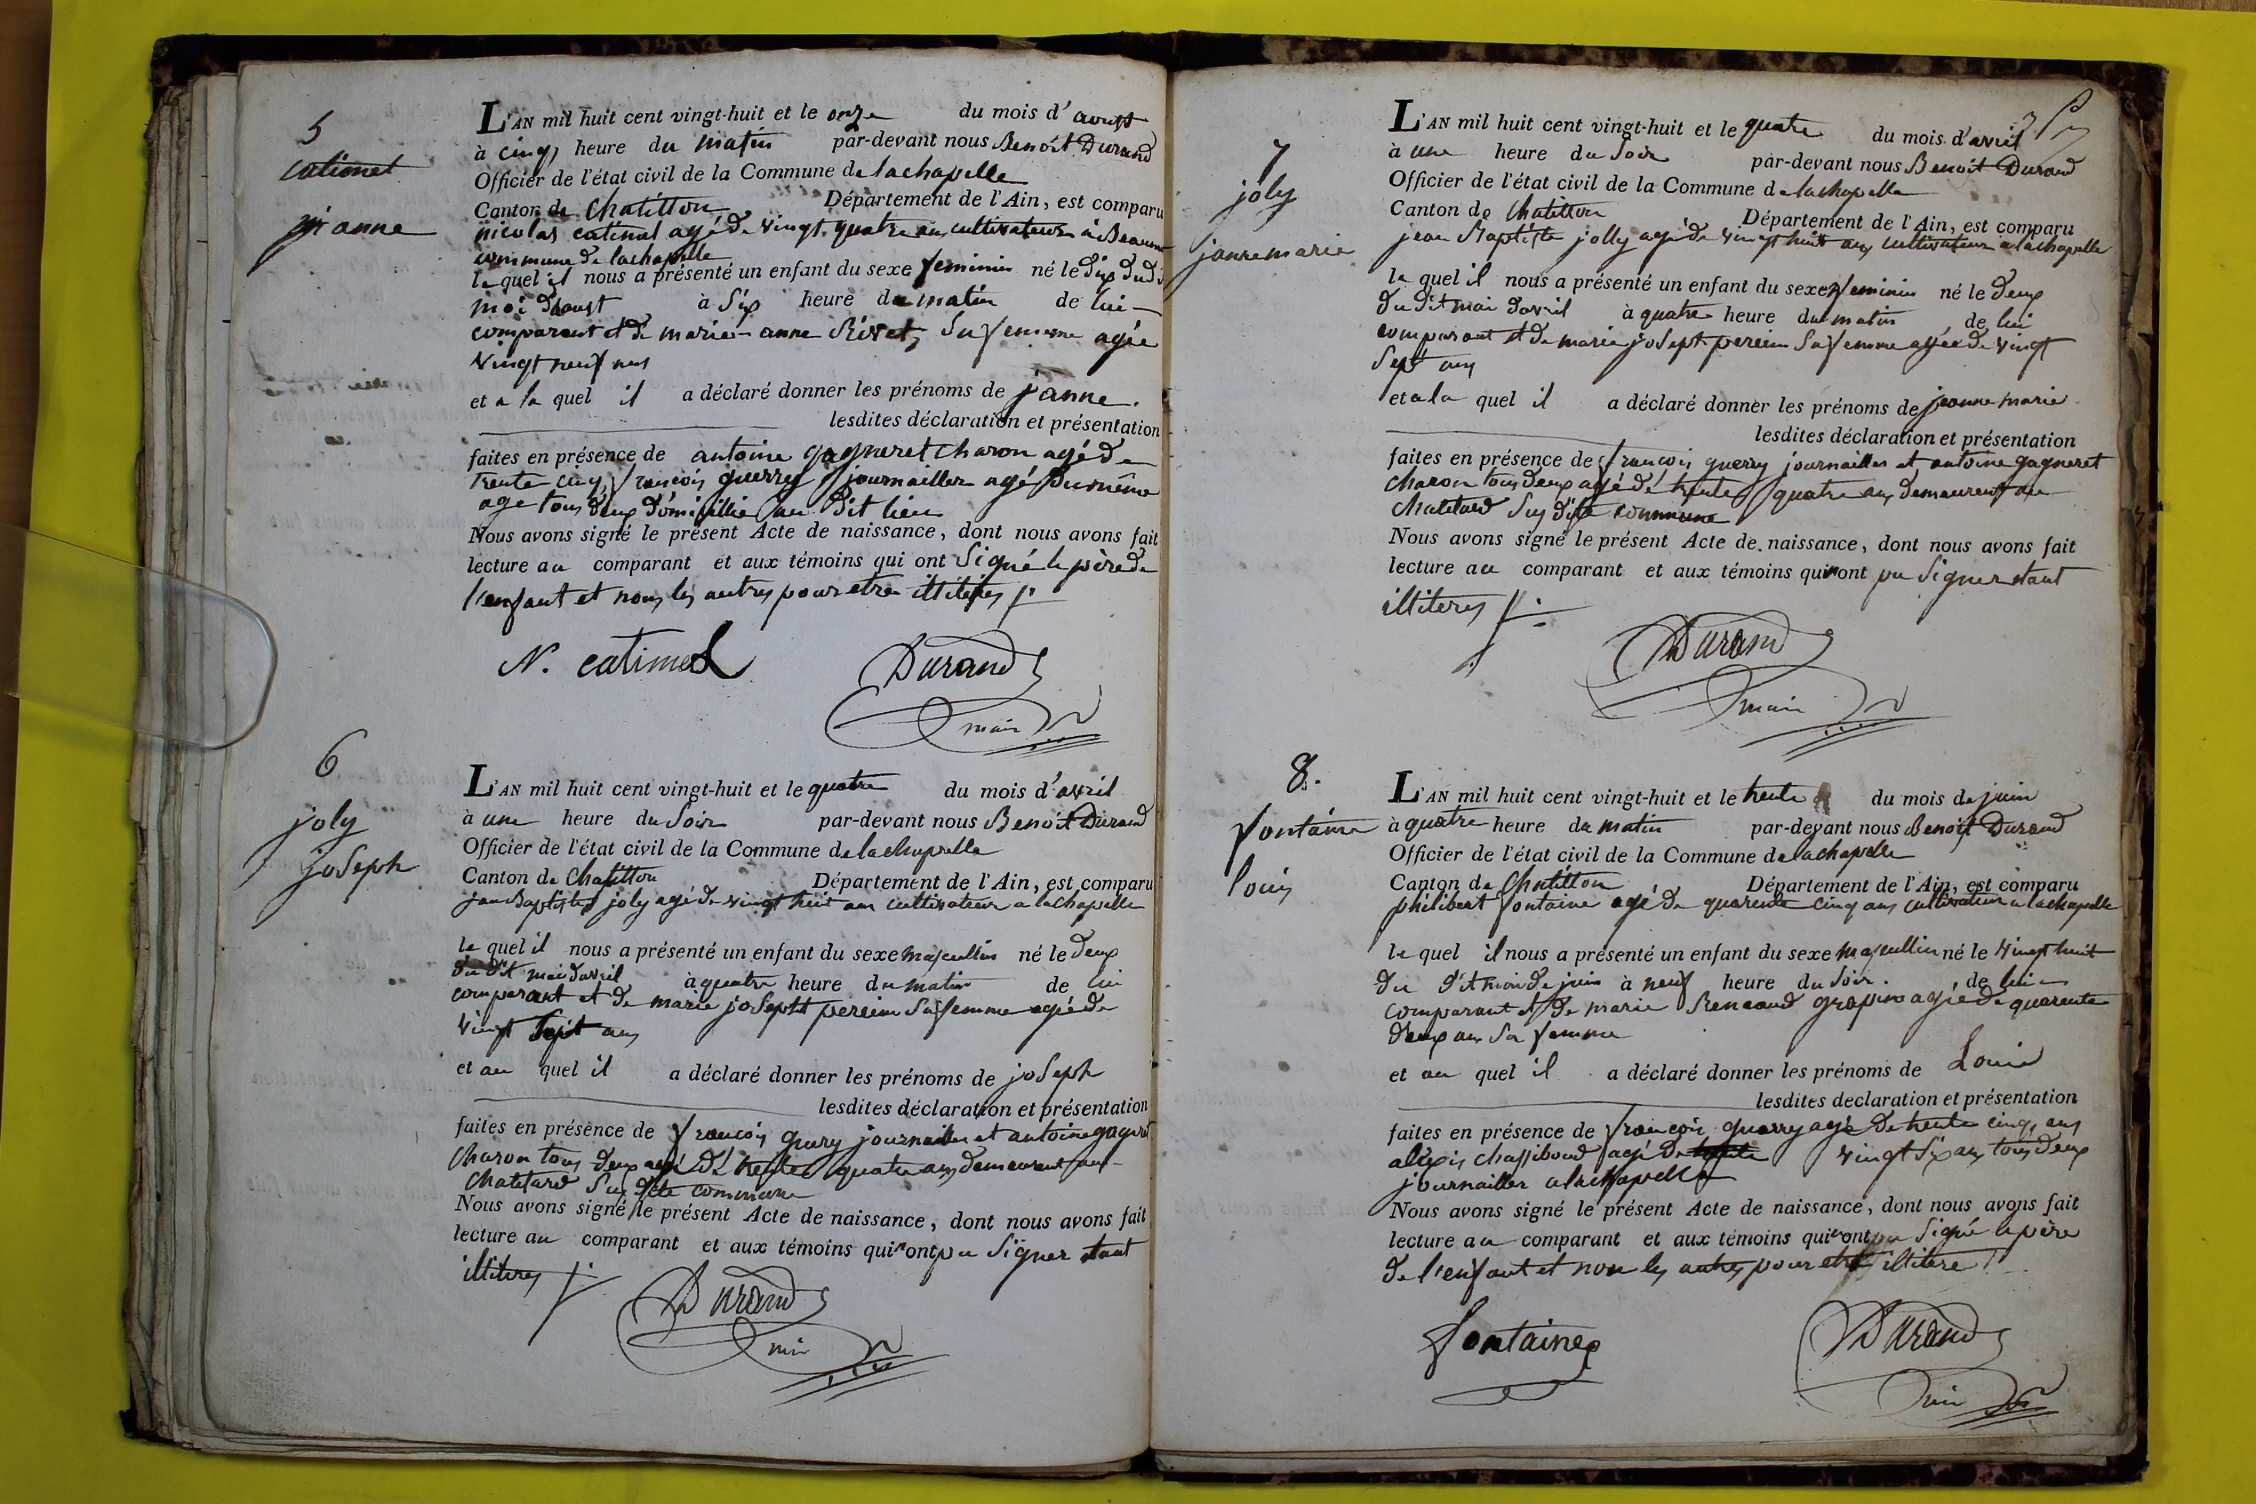 5
catimel
janne
L'AN mil huit cent vingt-huit et le onze du mois d'aoust
à cinq heure du matin par-devant nous Benoit Durand
Officier de l'état civil de la Commune de lachapelle
Canton de Chatillon Département de l'Ain, est comparu
nicolas catimel agé de vingt quatre ans cultivateur à Beaumont
commune de lachapelle
le quel il nous a présenté un enfant du sexe feminin né le dix dudit
moi daoust à six heure du matin de lui
comparant et de marie-anne Rivet, sa femme agée
vingt neuf ans
et a la quel il a déclaré donner les prénoms de janne.
lesdites déclaration et présentation
faites en présence de antoine gagneret charon agé de
trente cinq françois guerry journaillier agé du même
age tous deux domicillié au dit lieu
Nous avons signé le présent Acte de naissance, dont nous avons fait
lecture au comparant et aux témoins qui ont signé le père de
l'enfant et nons les autres pour etre illiteres
N. catimel
Durand
maire
6
joly
joseph
L'AN mil huit cent vingt-huit et le quatre du mois d'avril
à une heure du soir par-devant nous Benoit Durand
Officier de l'état civil de la Commune de lachapelle
Canton de Chatillon Département de l'Ain, est comparu
jan Baptiste joly agé de vingt huit ans cultivateur a lachapelle
le quel il nous a présenté un enfant du sexe masculin né le deux
du dit moi davril à quatre heure du matin de lui
comparant et de marie josepht perein sa femme agée de
vingt sept ans
et au quel il a déclaré donner les prénoms de joseph
lesdites déclaration et présentation
faites en présence de françois guery journaillier et antoine gagneret
charon tous deux agé de trente quatre ans demeurent au
chatelard sus dite commune
Nous avons signé le présent Acte de naissance, dont nous avons fait
lecture au comparant et aux témoins qui n'ont pu signer etant
illiteres
Durand
maire
7
joly
janne marie
L'AN mil huit cent vingt-huit et le quatre du mois d'avril
à une heure du soir par-devant nous Benoit Durand
Officier de l'état civil de la Commune de lachapelle
Canton de Chatillon Département de l'Ain, est comparu
jean Baptiste jolly agé de vingt huit ans cultivateur a lachapelle
le quel il nous a présenté un enfant du sexe feminin né le deux
du dit moi davril à quatre heure du matin de lui
comparant et de marie josept perein sa femme agée de vingt
sept ans
et a la quel il a déclaré donner les prénoms de jeanne marie
lesdites déclaration et présentation
faites en présence de françois guerry journaillier et antoine gagneret
charon tous deux agé de trente quatre ans demeurent au
chatelard sus dite commune
Nous avons signé le présent Acte de naissance, dont nous avons fait
lecture au comparant et aux témoins qui n'ont pu signer etant
illiteres
Durand
maire
8.
fontaine
louis
L'AN mil huit cent vingt-huit et le trente du mois de juin
à quatre heure du matin par-devant nous Benoit Durand
Officier de l'état civil de la Commune de lachapelle
Canton de Chatillon Département de l'Ain, est comparu
philibert fontaine agé de quarente cinq ans cultivateur a lachapelle
le quel il nous a présenté un enfant du sexe masculin né le vingt huit
du dit moi de juin à neuf heure du soir. de lui
comparant et de marie Renaoud gropin agée de quarente
deux ans sa femme
et au quel il a déclaré donner les prénoms de Louis
lesdites declaration et présentation
faites en présence de françois guerry agé de trente cinq ans
alexis chassiboud agé de trente vingt six ans tous deux
journaillier a lachapelle
Nous avons signé le présent Acte de naissance, dont nous avons fait
lecture au comparant et aux témoins qui ont signé le père
de l'enfant et non les autres pour etre illitere
fontaine
Durand
maire